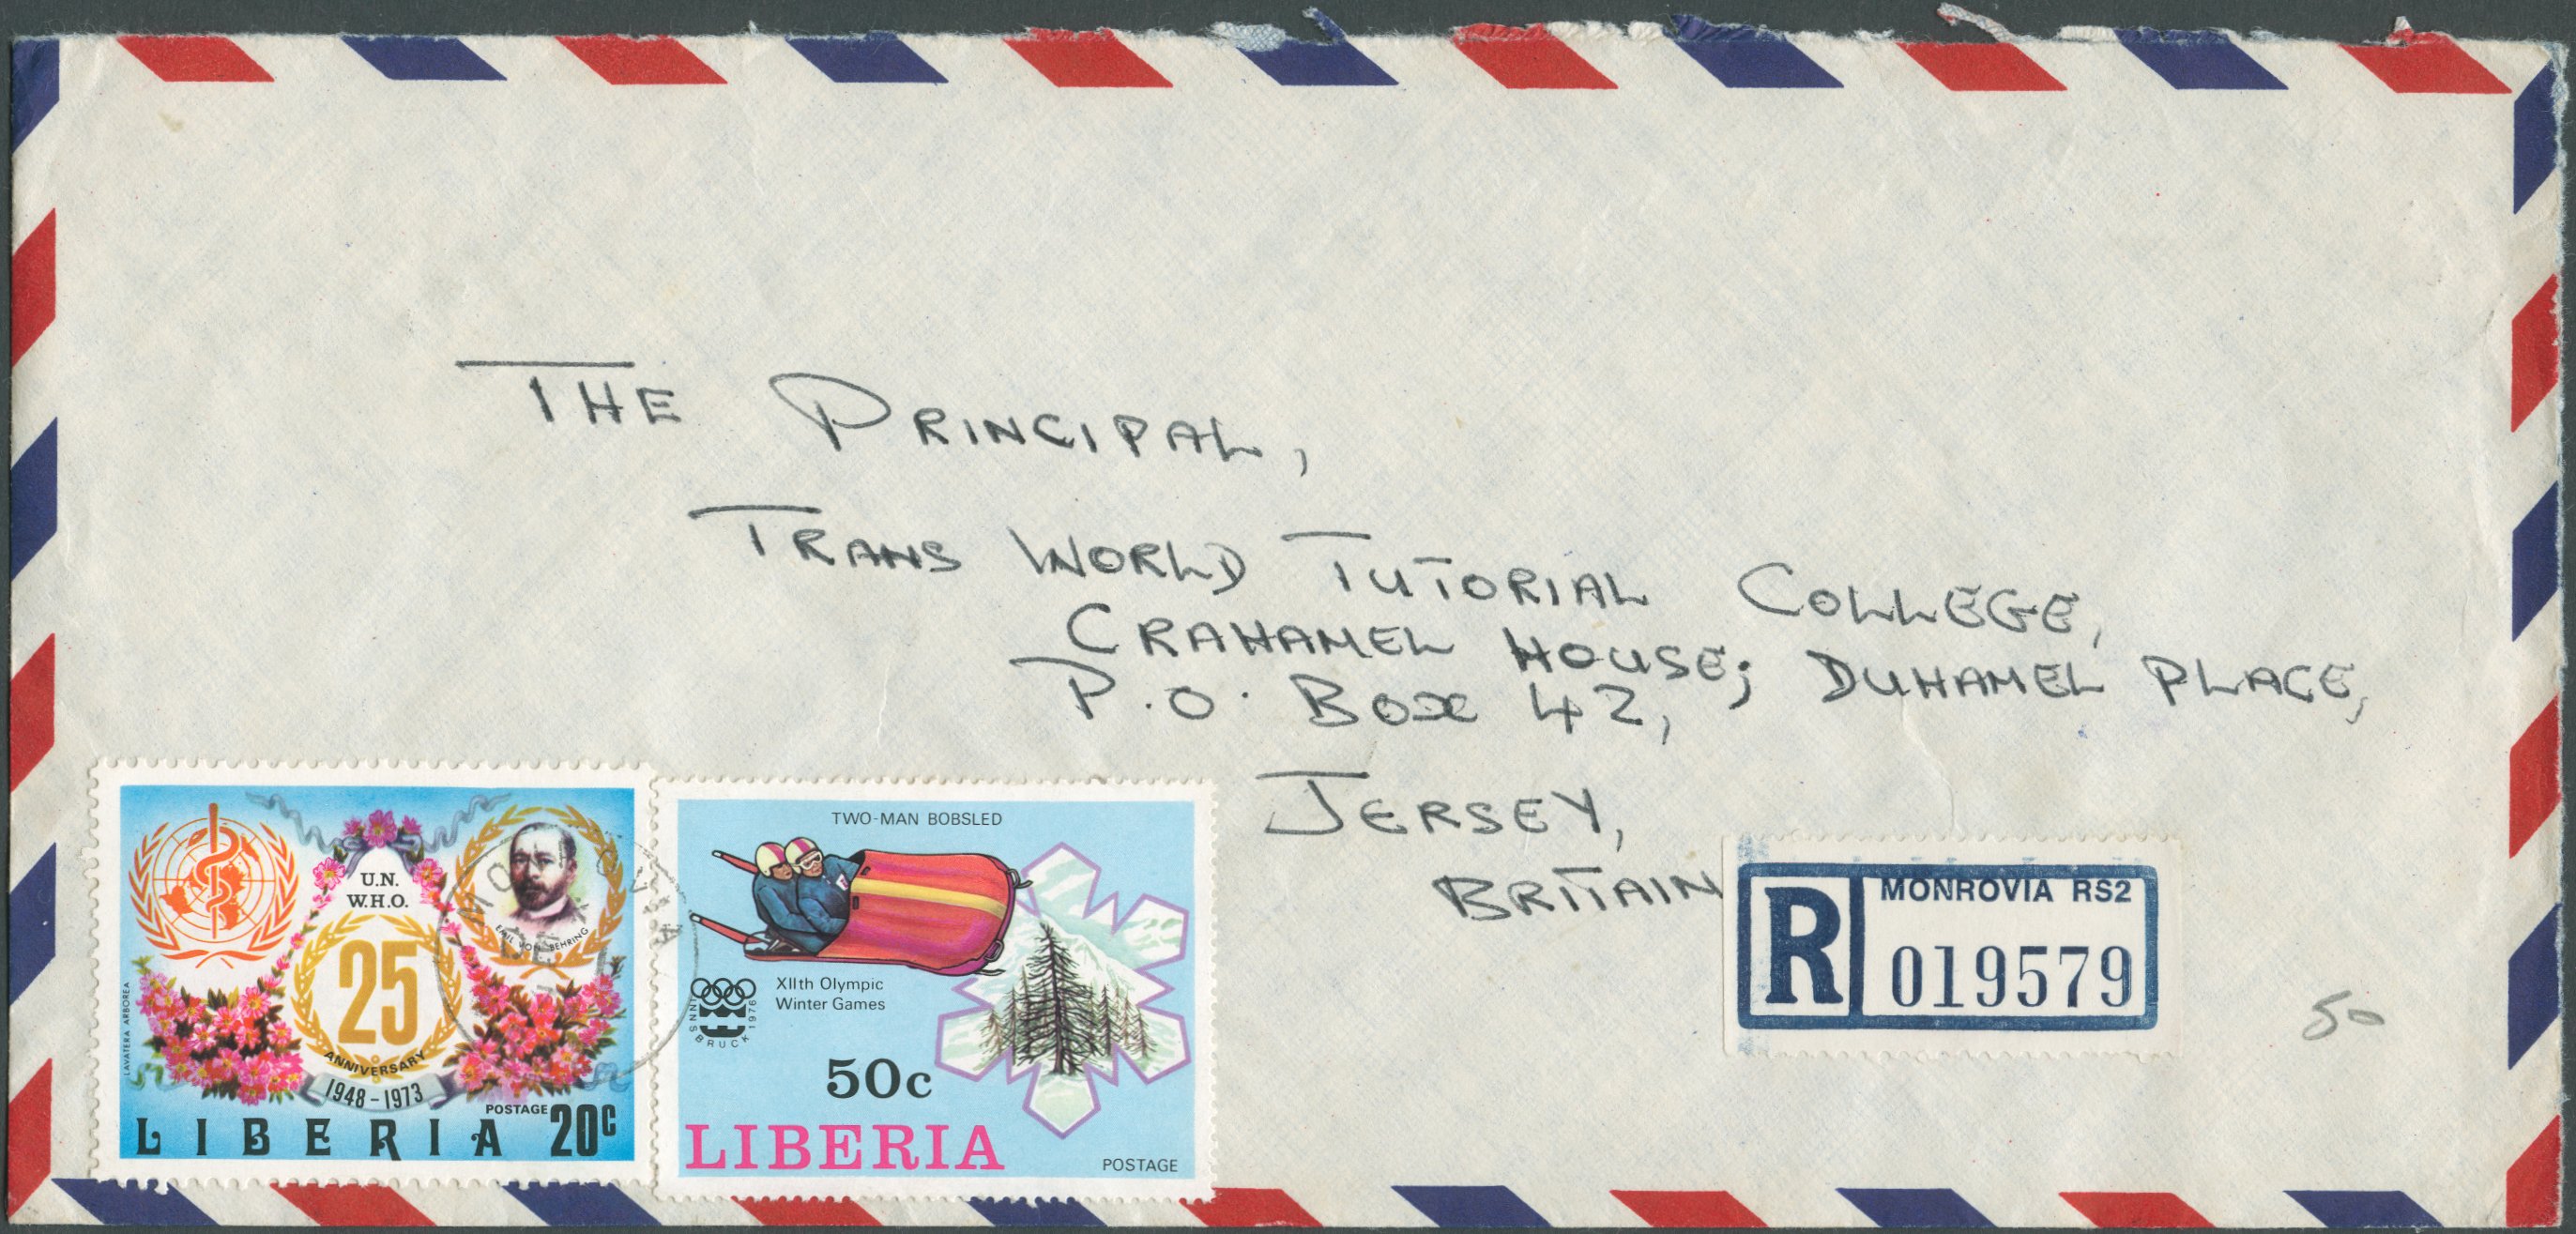 THE PRINCIPAL,
TRANS WORLD TUTORIAL COLLEGE,
CRAHAMEL HOUSE; DUHAMEL PLACE,
P.O. BOX 42,
JERSEY,
BRITAIN
U.N.
W.H.O.
EMIL VON BEHRING
25
ANNIVERSARY
1948-1973
LAVATERA ARBOREA
POSTAGE 20c
LIBERIA
TWO-MAN BOBSLED
XIIth Olympic
Winter Games
INNSBRUCK 1976
50c
LIBERIA
POSTAGE
MONROVIA RS2
R 019579
50